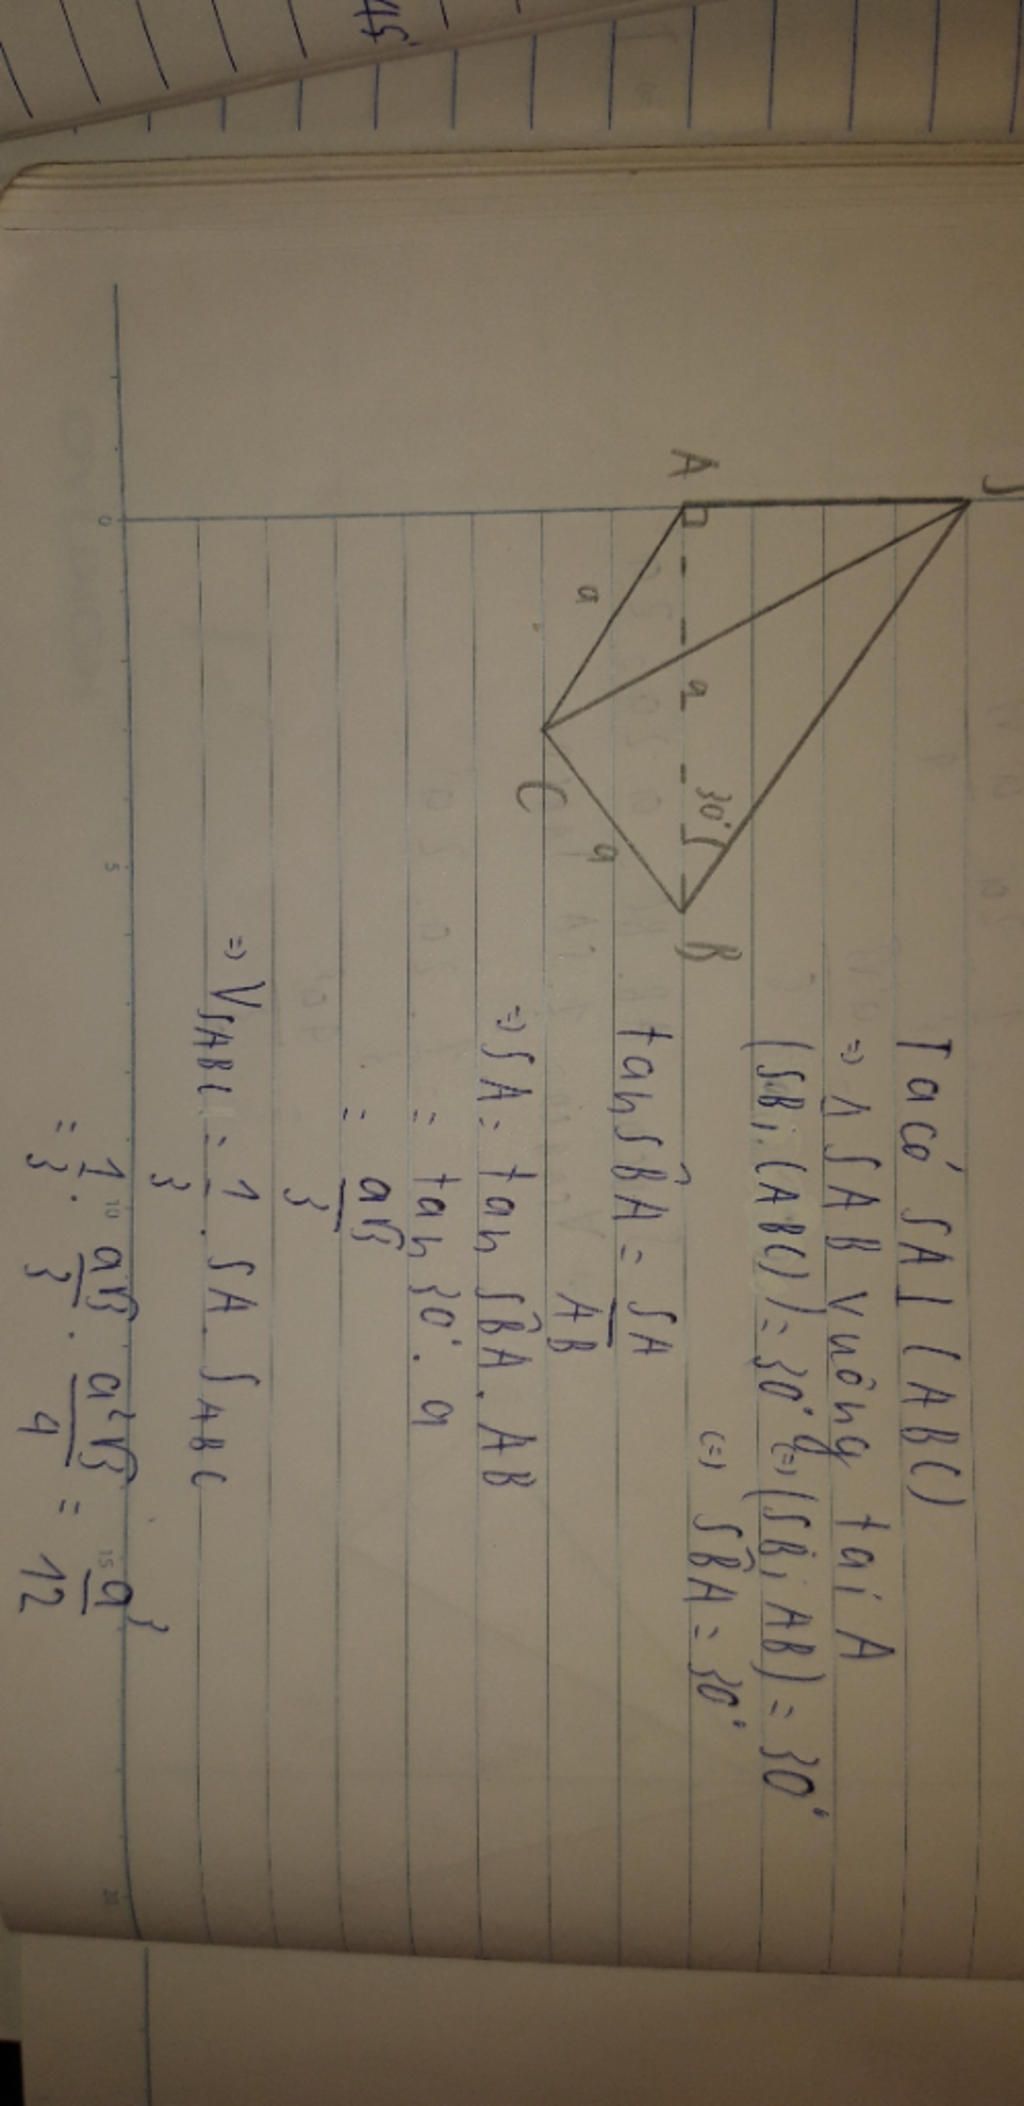 S
A
B
C
a
a
a
30°
Ta có SA ⊥ (ABC)
=> Δ SAB vuông tại A
(SB, (ABC)) = 30° (=) (SB, AB) = 30°
(=) SB̂A = 30°
tan SB̂A = SA/AB
=) SA = tan SB̂A . AB
= tan 30° . a
= a√3/3
=) V_SABC = 1/3 . SA . S_ABC
= 1/3 . a√3/3 . a²√3/4 = a³/12
0 5 10 15 20